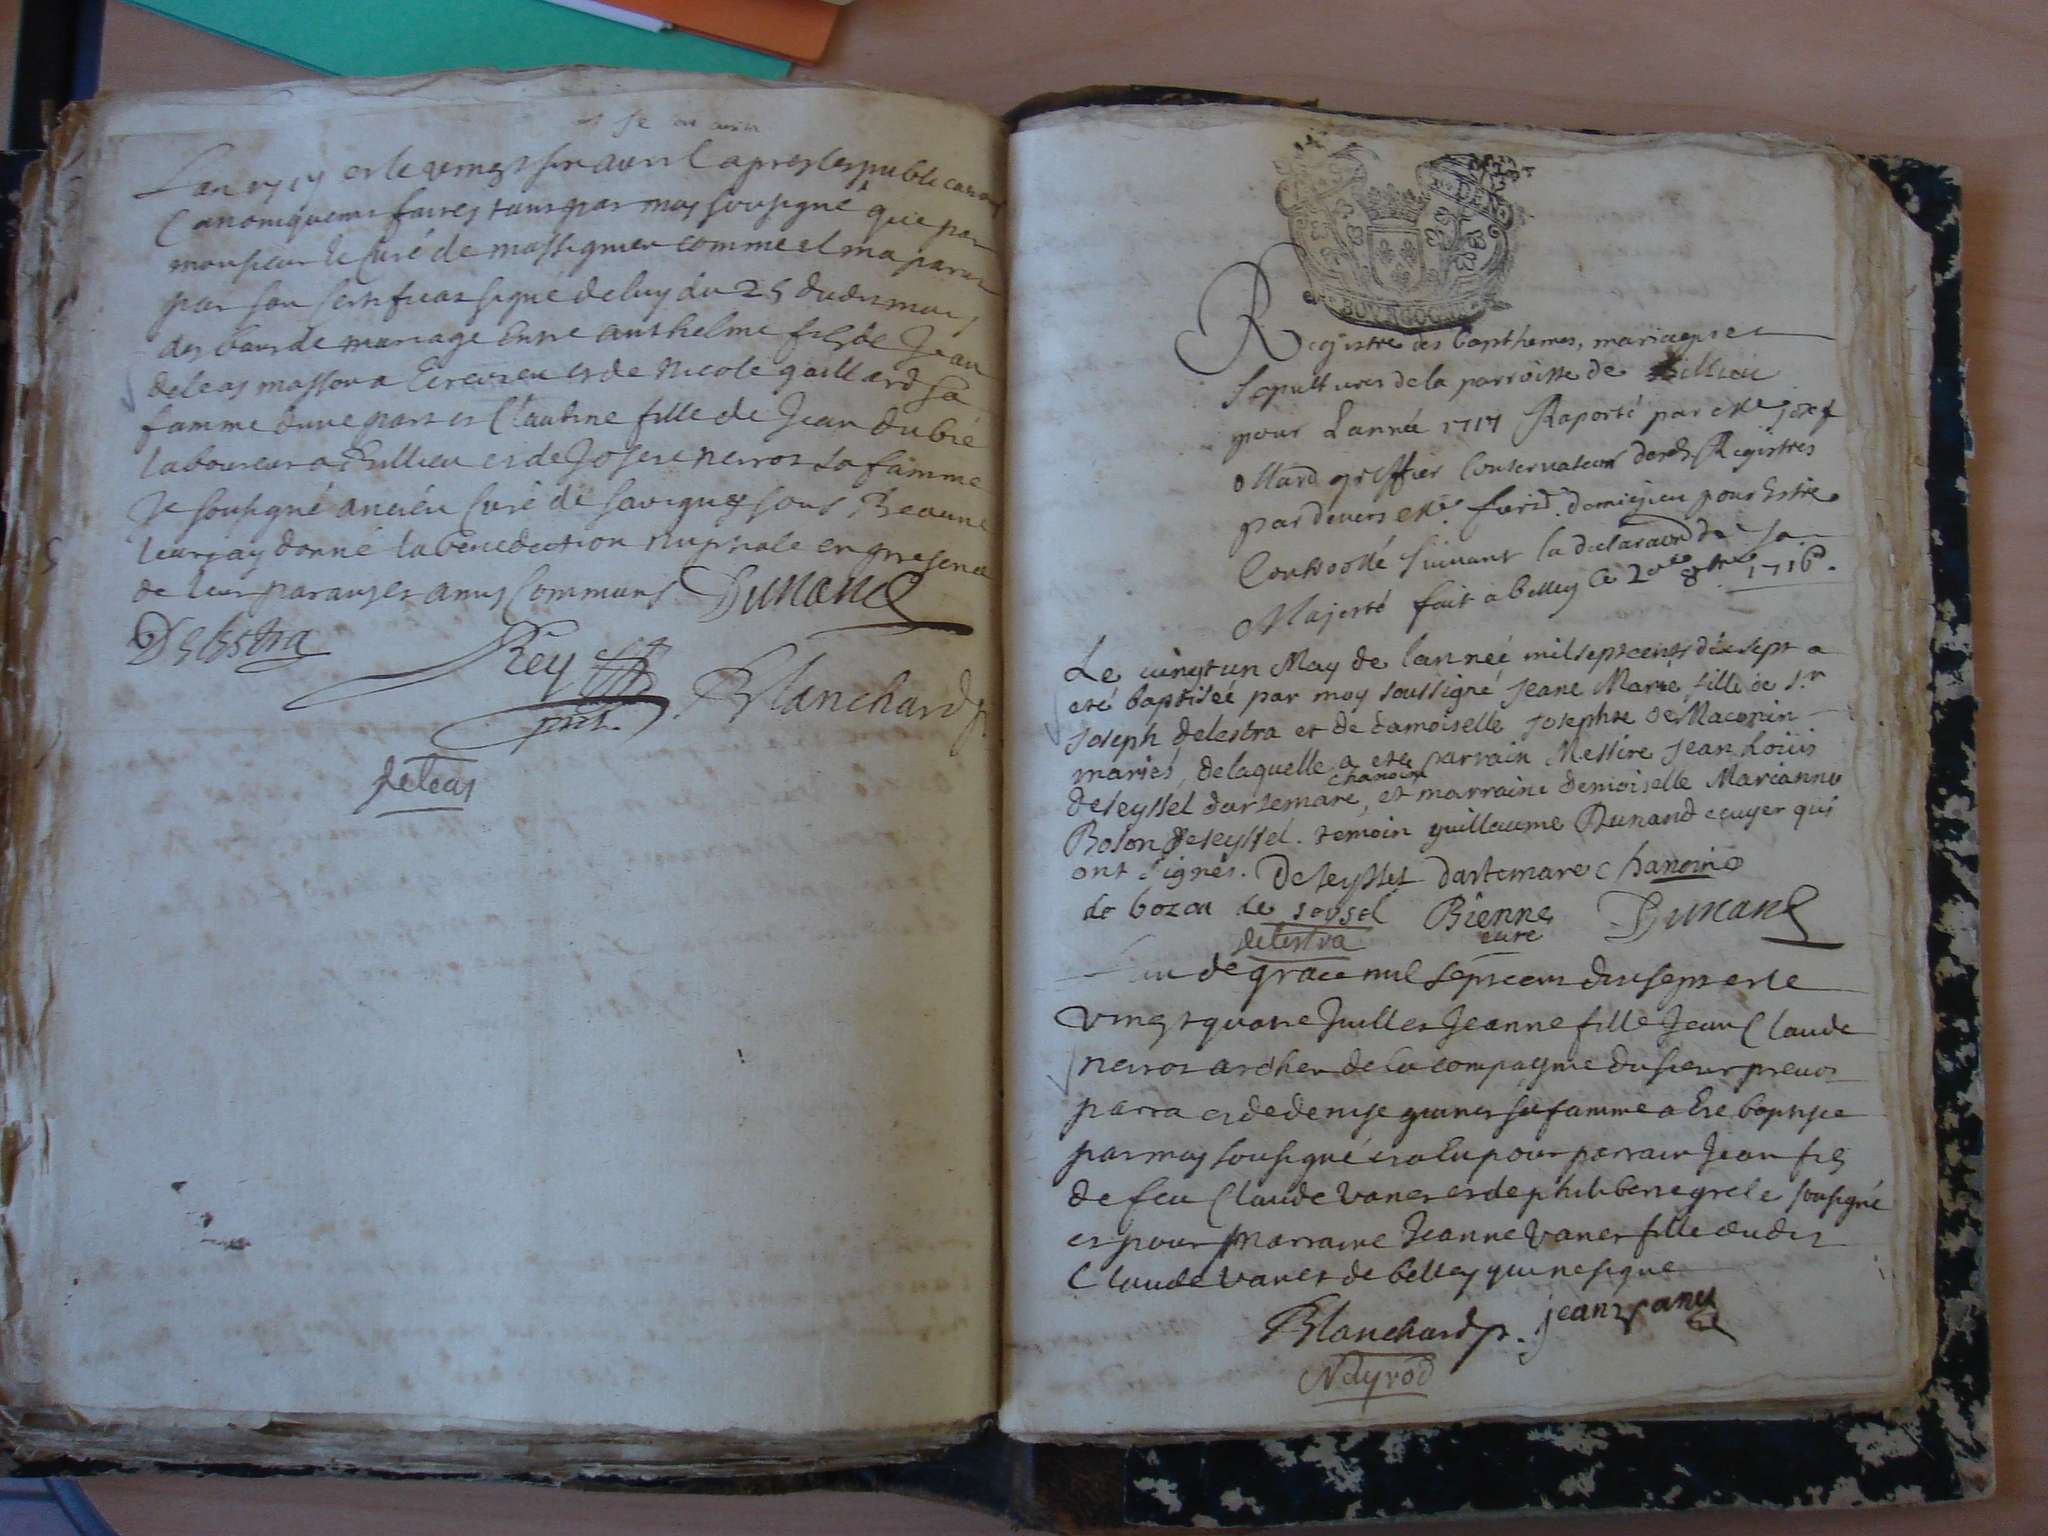 Lan 1717 et le vingt six avril apres les publications
Canoniquement faites tant par moy sousigné que par
monsieur le Curé de massignieu comme il ma paru
par son sertificat signé de luy du 25 dudit mois
des bans de mariage entre anthelme fils de Jean
deleas masson a et de Nicole gaillard sa
famme dune part et Claudine fille de Jean dubié
laboureur a Billieu et de Josete neirot sa famme
Je sousigné ancién Curé de savigny sous Beaune
leur ay donné la bénédiction nuptiale en presence
de leur parans et amys Communs Dunand
Delestra
Rey
Blanchard p
deleas
BOURGOGNE
Registre des bapthemes, mariages et
sepultures de la parroisse de Billieu
pour Lanné 1717 Raporté par Me Josef
Ollard greffier Conservateur desd Registres
par devers Me de migieu pour Estre
Controollé suivant la declaraõn de Sa
Majesté fait a belley le 20e 8bre 1716.
Le vingt un May de lanneé mil sept cents dix sept a
eté baptiseé par moy soussigné Jeane Marie fille de sr
Joseph delestra et de damoiselle Josephte de Maconin
mariés, de laquelle a eté parrain Messire Jean Loüis
chanoine
deseyssel dartemare, et marraine demoiselle Marianne
Boson deseyssel. temoin guillaume Dunand ecuyer qui
ont signés. Deseyssel dartemare chanoine
de bozon de seysel Bienne Dunand
delestra curé
Lan de grace mil sept cent dix sept et le
vingt quatre Juillet Jeanne fille Jean Claude
neirot archer de la compagnie du sieur prevot
parra et de denise guinet sa famme a Eté baptisee
par moy sousigné et a Eu pour parrain Jean fils
de feu Claude vanet et de philiberte grele sousigné
et pour marraine Jeanne vanet fille dudit
Claude vanet de belley qui ne signe
Blanchard p. jean vanet
Neyrod